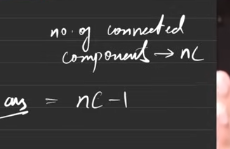 no. of connected
component → nC
ans = nC - 1